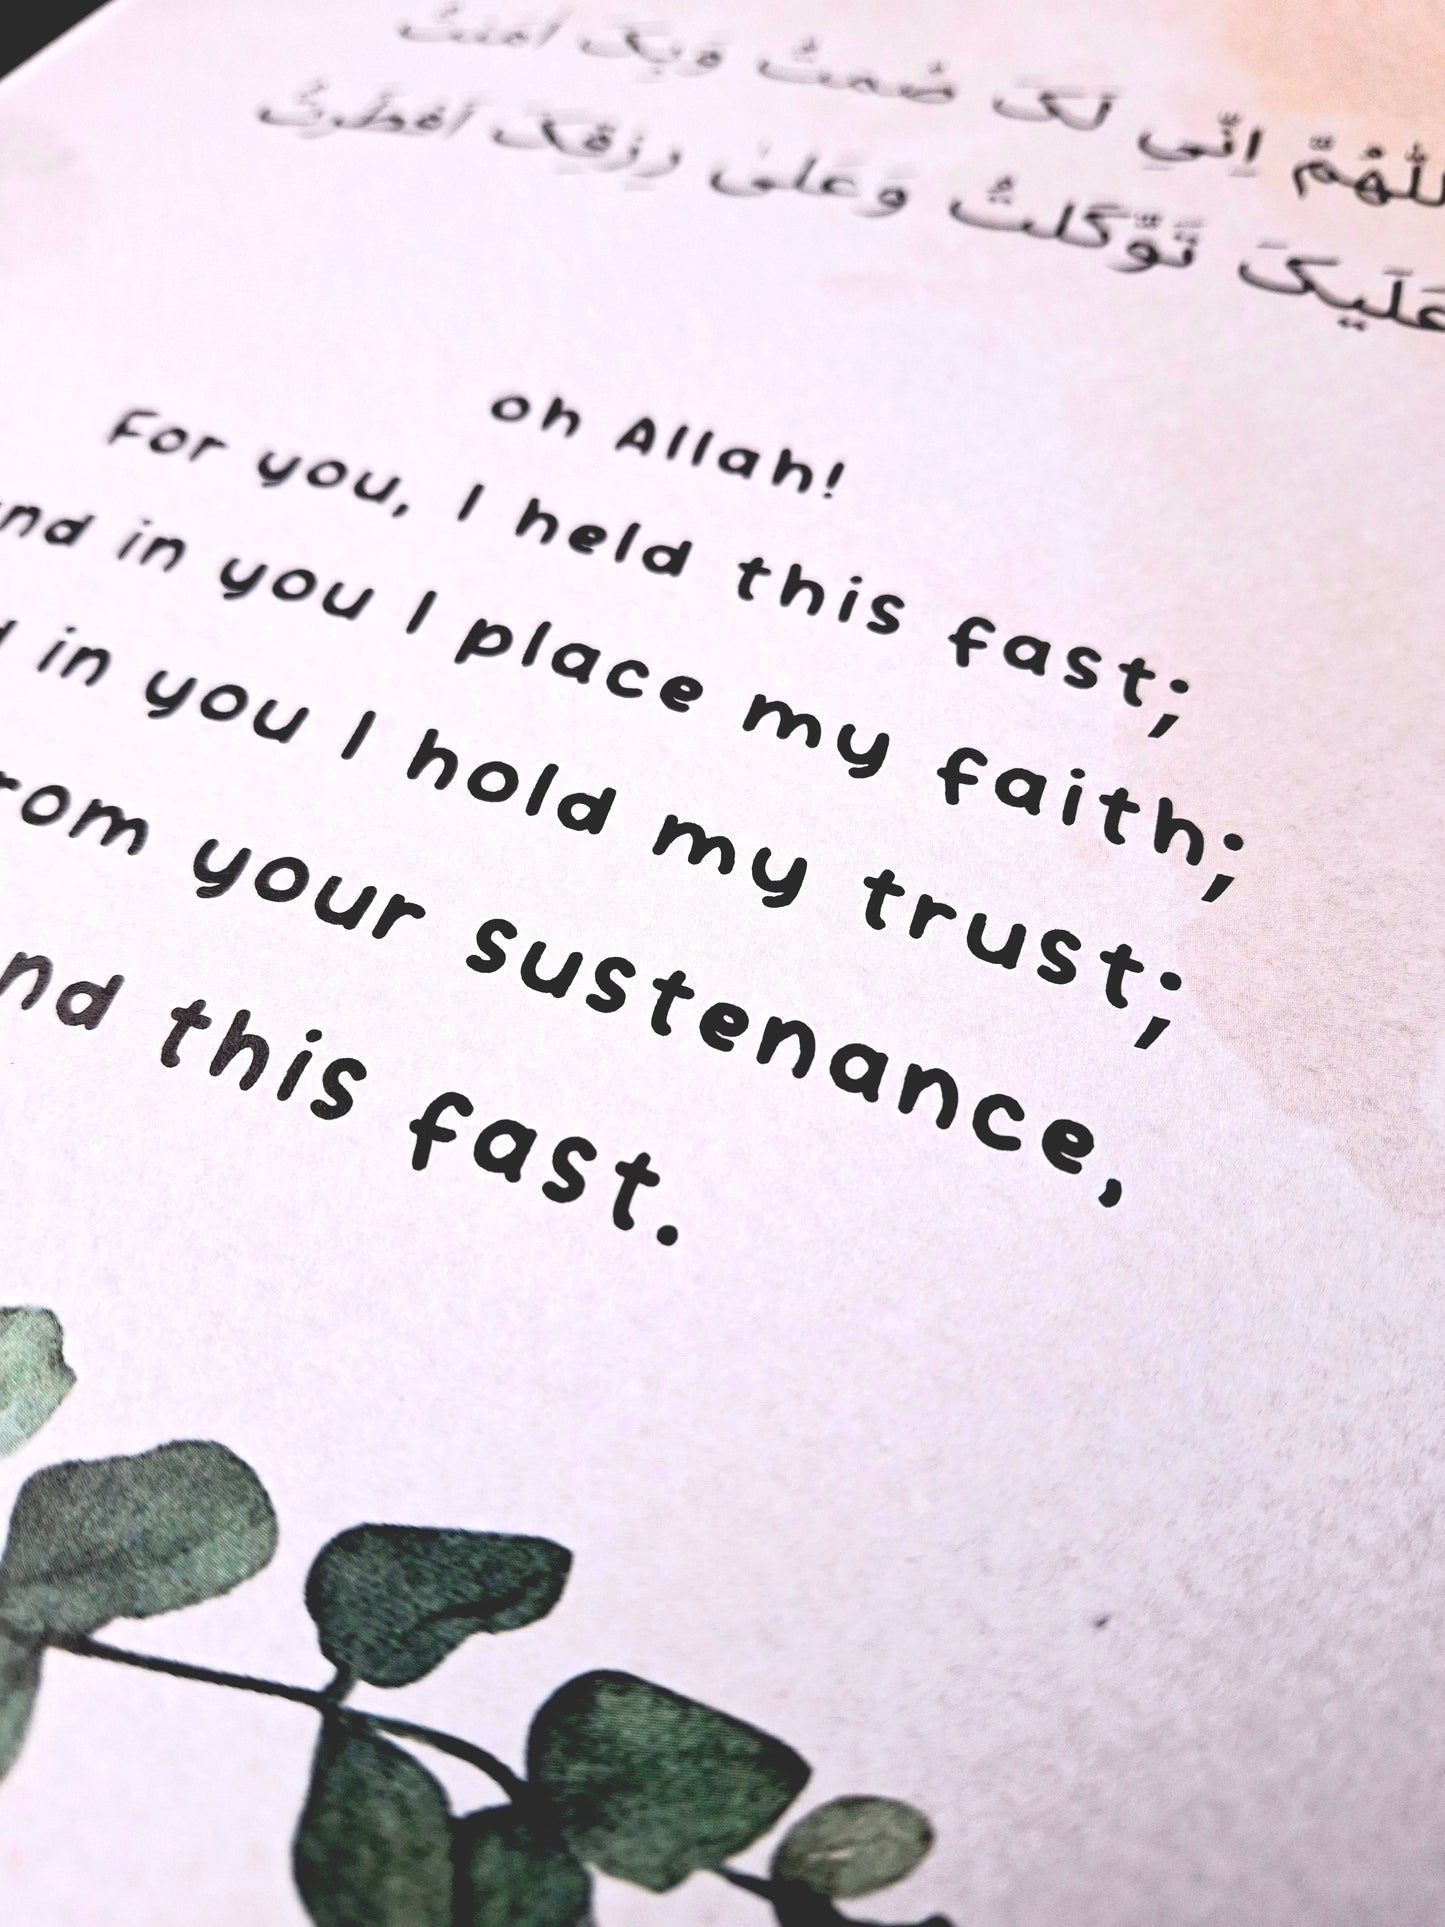 اللّٰهُمَّ اِنِّي لَکَ صُمتُ وَبِکَ اٰمَنتُ
عَلَيکَ تَوَّکَلتُ وَعَلىٰ رِزقِکَ اَفطَرتُ
oh Allah!
For you, I held this fast;
and in you I place my faith;
in you I hold my trust;
your sustenance,
this fast.